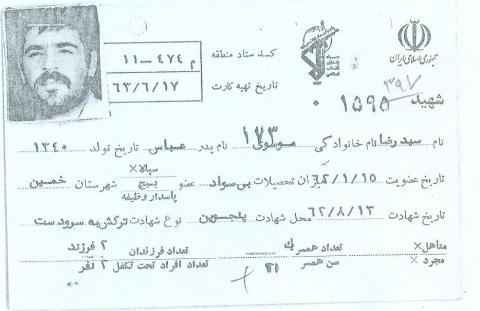 جمهوری اسلامی ایران
کد ستاد منطقه
م ۴۷۴ – ۱۱
تاریخ تهیه کارت
۶۳/۶/۱۷
۳۹۷
شهید ۱۵۹۵
۱۷۳
نام سیدرضا نام خانوادگی موسوی نام پدر عباس تاریخ تولد ۱۳۴۰
تاریخ عضویت ۶۲/۱/۱۵ میزان تحصیلات بی‌سواد عضو سپاه× بسیج پاسدار وظیفه شهرستان خمین
تاریخ شهادت ۶۲/۸/۱۳ محل شهادت پنجوین نوع شهادت ترکش به سر و دست
متأهل× تعداد همسر تعداد فرزندان ۲ فرزند
مجرد× سن همسر ۲۱ تعداد افراد تحت تکفل ۲ نفر